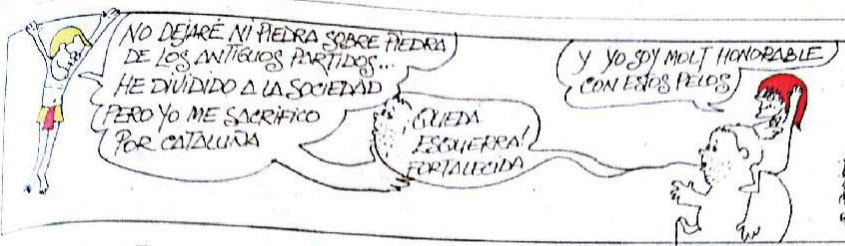 NO DEJARÉ NI PIEDRA SOBRE PIEDRA
DE LOS ANTIGUOS PARTIDOS...
HE DIVIDIDO A LA SOCIEDAD
PERO YO ME SACRIFICO
POR CATALUÑA
¡QUEDA
ESQUERRA!
FORTALECIDA
Y YO SOY MOLT HONORABLE
CON ESTOS PELOS